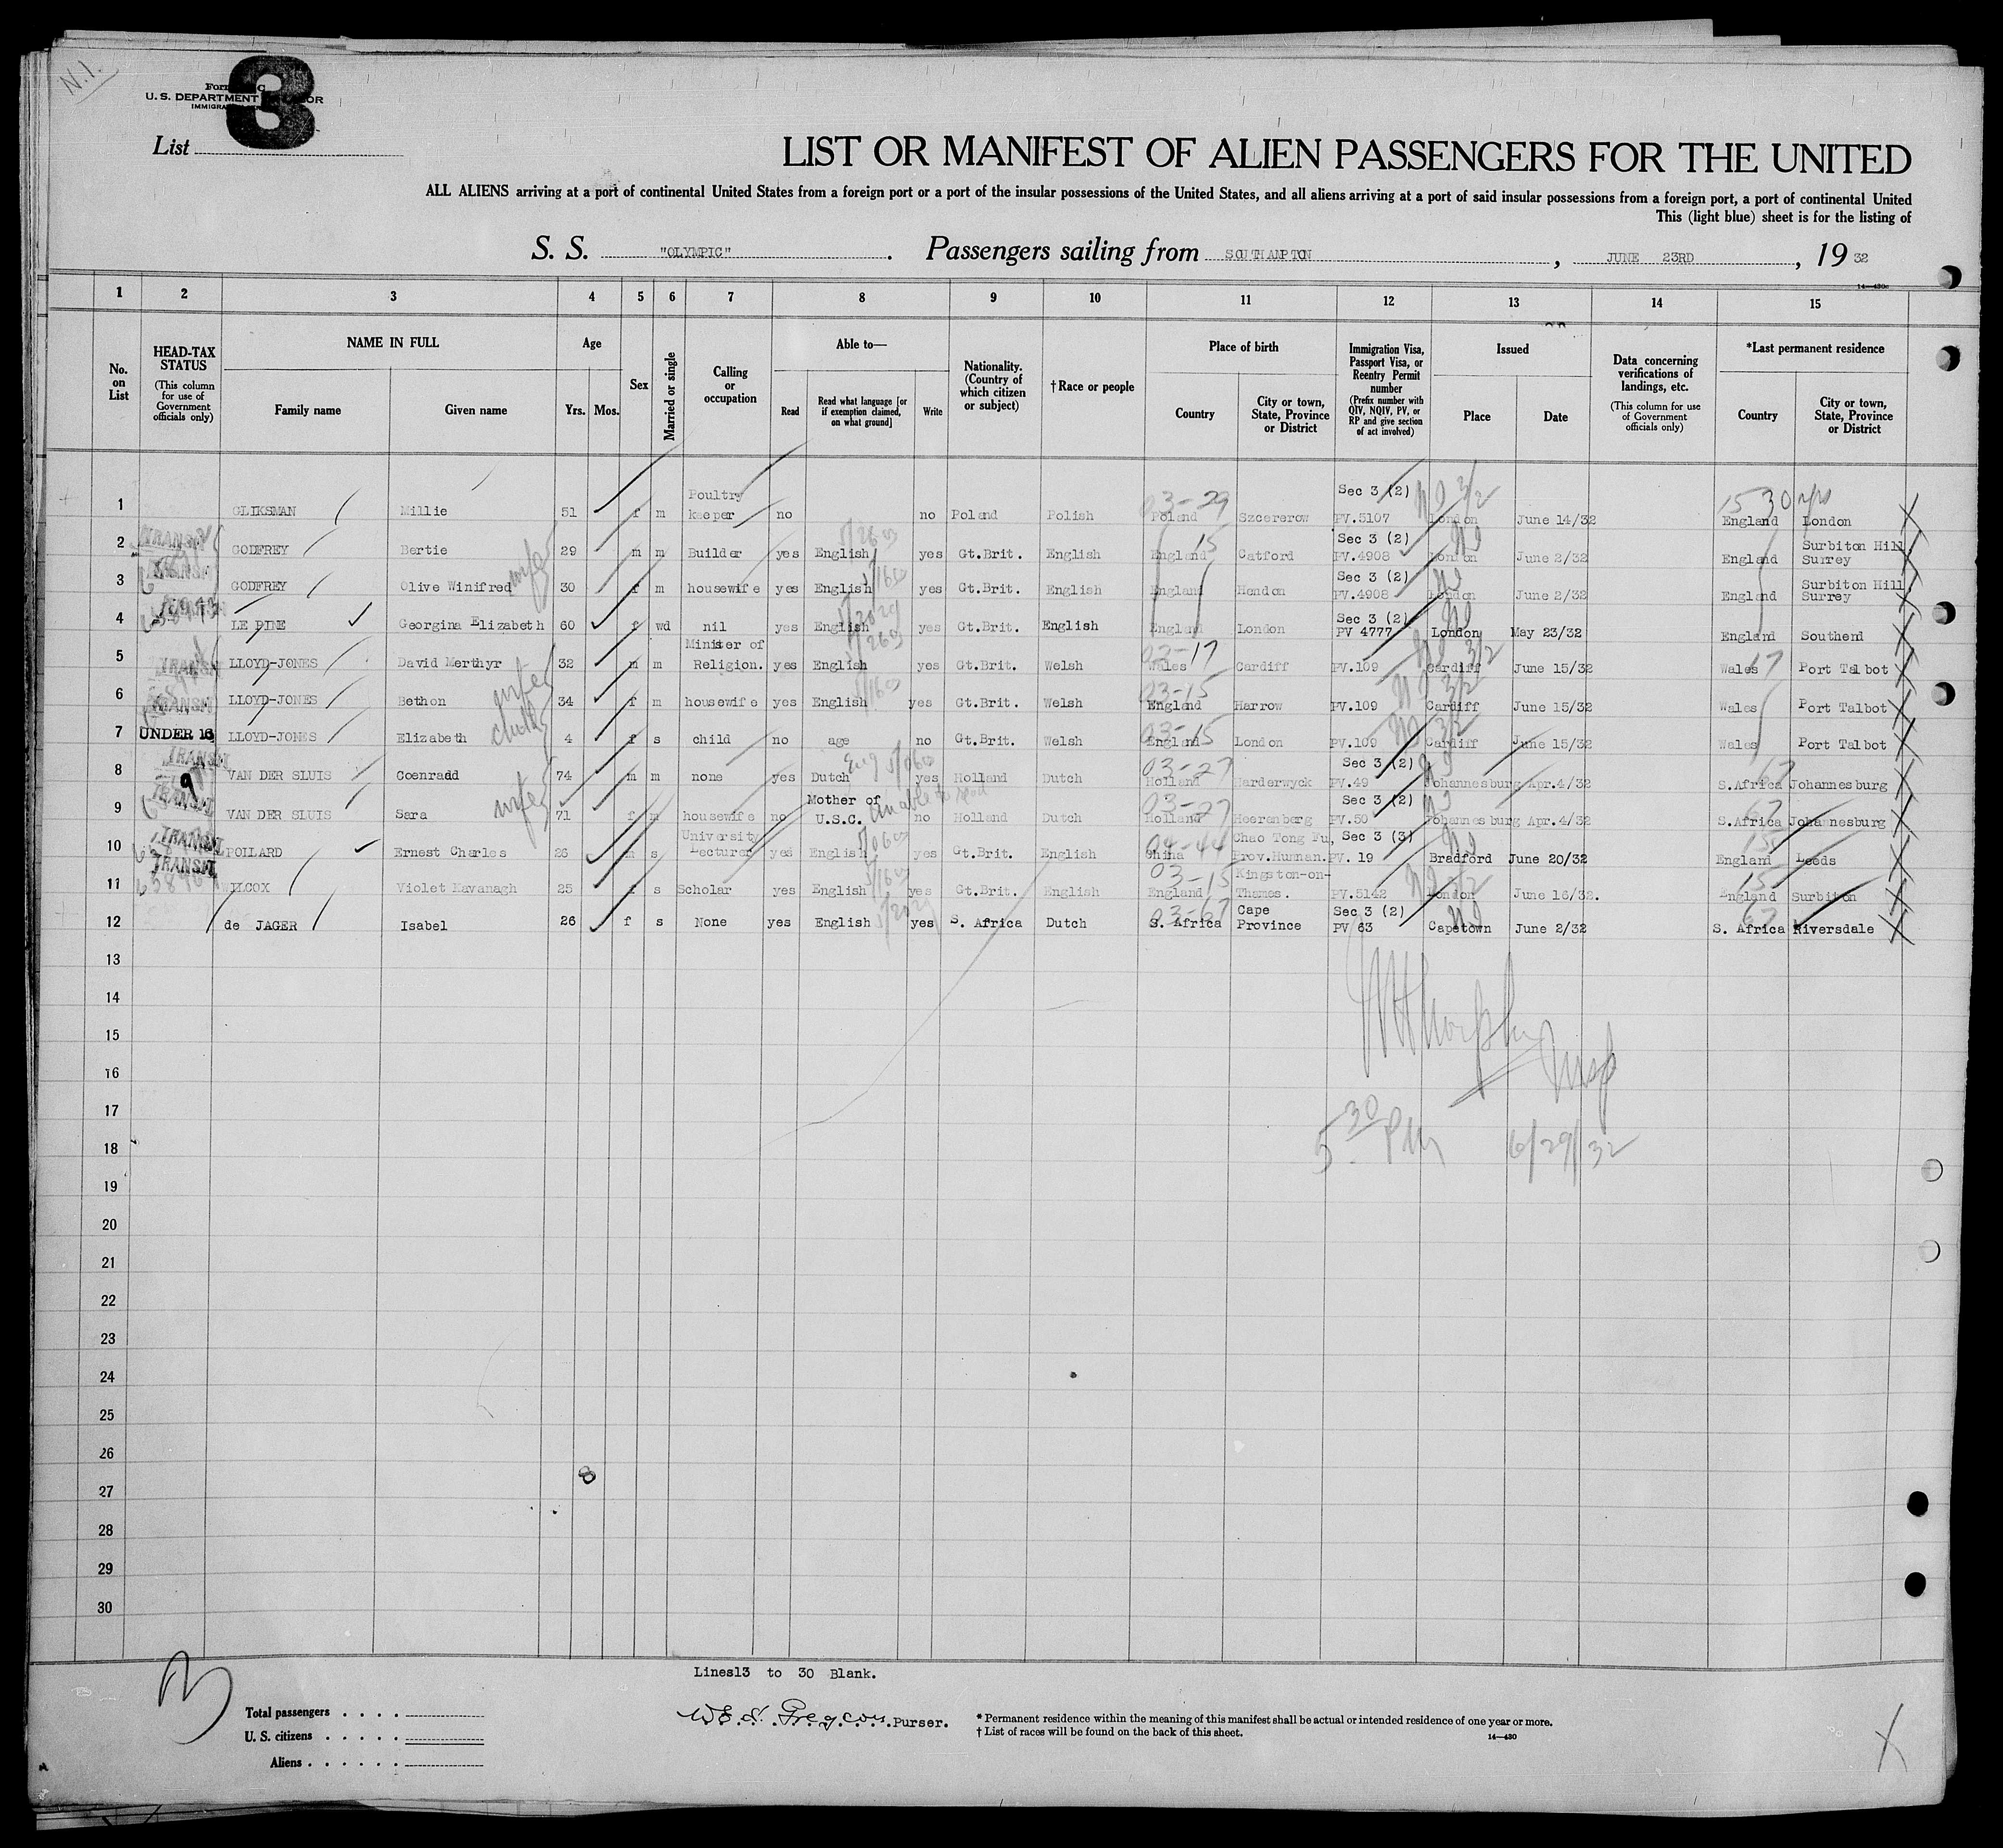 N.I.
3
U. S. DEPARTMENT
List
LIST OR MANIFEST OF ALIEN PASSENGERS FOR THE UNITED
ALL ALIENS arriving at a port of continental United States from a foreign port or a port of the insular possessions of the United States, and all aliens arriving at a port of said insular possessions from a foreign port, a port of continental United
This (light blue) sheet is for the listing of
S. S. "OLYMPIC". Passengers sailing from SOUTHAMPTON, JUNE 23RD, 1932
1 2 3 4 5 6 7 8 9 10 11 12 13 14 15
No. on List
HEAD-TAX STATUS (This column for use of Government officials only)
NAME IN FULL Family name Given name
Age Yrs. Mos.
Sex
Married or single
Calling or occupation
Able to— Read Read what language [or if exemption claimed, on what ground] Write
Nationality. (Country of which citizen or subject)
†Race or people
Place of birth Country City or town, State, Province or District
Immigration Visa, Passport Visa, or Reentry Permit number (Prefix number with QIV, NQIV, PV, or RP and give section of act involved)
Issued Place Date
Data concerning verifications of landings, etc. (This column for use of Government officials only)
*Last permanent residence Country City or town, State, Province or District
1 GLIKSMAN Millie 51 f m Poultry keeper no no Poland Polish 03-29 Poland Szcererow Sec 3 (2) PV.5107 London June 14/32 15 30 yrs England London
2 TRANSIT GODFREY Bertie 29 m m Builder yes English yes Gt.Brit. English England 15 Catford Sec 3 (2) PV.4908 London June 2/32 England Surbiton Hill Surrey
3 TRANSIT GODFREY Olive Winifred wife 30 f m housewife yes English yes Gt.Brit. English England Hendon Sec 3 (2) PV.4908 London June 2/32 England Surbiton Hill Surrey
4 LE PINE Georgina Elizabeth 60 f wd nil yes English yes Gt.Brit. English England London Sec 3 (2) PV 4777 London May 23/32 England Southend
5 TRANSIT LLOYD-JONES David Merthyr 32 m m Minister of Religion. yes English yes Gt.Brit. Welsh 03-17 Wales Cardiff PV.109 Cardiff June 15/32 Wales 17 Port Talbot
6 TRANSIT LLOYD-JONES Bethon wife 34 f m housewife yes English yes Gt.Brit. Welsh 03-15 England Harrow PV.109 Cardiff June 15/32 Wales Port Talbot
7 UNDER 16 LLOYD-JONES Elizabeth child 4 f s child no age no Gt.Brit. Welsh 03-15 England London PV.109 Cardiff June 15/32 Wales Port Talbot
8 TRANSIT VAN DER SLUIS Coenradd 74 m m none yes Dutch Eng yes Holland Dutch 03-27 Holland Harderwyck Sec 3 (2) PV.49 Johannesburg Apr.4/32 S.Africa Johannesburg
9 TRANSIT VAN DER SLUIS Sara wife 71 f m housewife no Mother of U.S.C. unable to read no Holland Dutch 03-27 Holland Heerenberg Sec 3 (2) PV.50 Johannesburg Apr.4/32 67 S.Africa Johannesburg
10 TRANSIT POLLARD Ernest Charles 26 m s University Lecturer yes English yes Gt.Brit. English 04-44 China Chao Tong Fu, Prov.Hunnan. Sec 3 (3) PV. 19 Bradford June 20/32 15 England Leeds
11 TRANSIT WILCOX Violet Kavanagh 25 f s Scholar yes English yes Gt.Brit. English 03-15 England Kingston-on-Thames. PV.5142 London June 16/32. 15 England Surbiton
12 de JAGER Isabel 26 f s None yes English yes S. Africa Dutch 03-67 S. Africa Cape Province Sec 3 (2) PV 63 Capetown June 2/32 67 S. Africa Riversdale
13
14
15
16
17
18
19
20
21
22
23
24
25
26
27
28
29
30
Insp
5 30 PM 6/29/32
8
Lines13 to 30 Blank.
3
Total passengers
U. S. citizens
Aliens
Purser.
* Permanent residence within the meaning of this manifest shall be actual or intended residence of one year or more.
† List of races will be found on the back of this sheet.
14—430